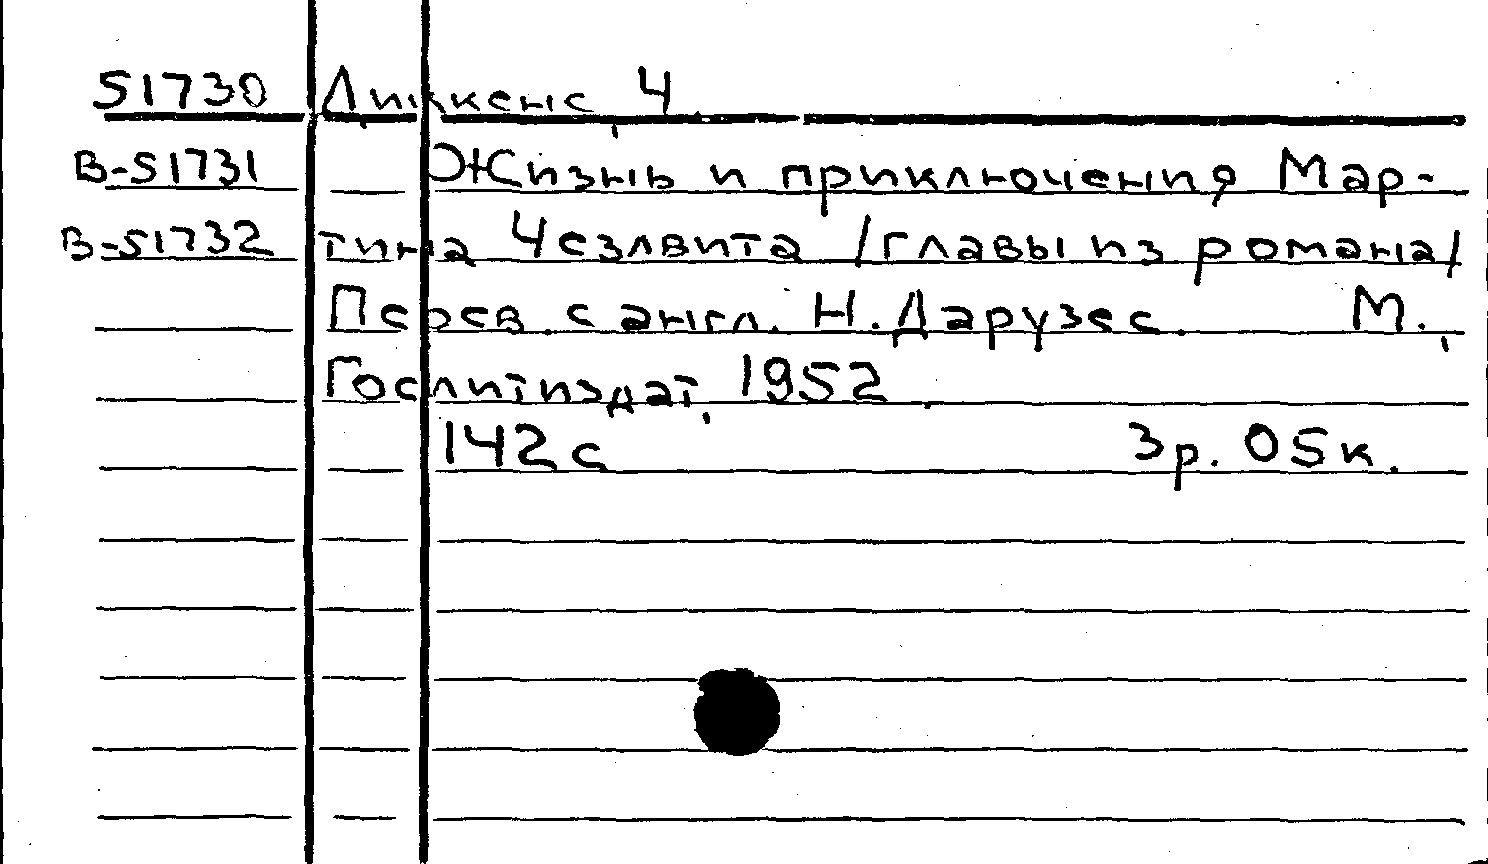 51730 Диккенс, Ч
В-51731 Жизнь и приключения Мар-
В-51732 тина Чезлвита /главы из романа/
Перев. с англ. Н. Дарузес. М.,
Гослитиздат, 1952.
142с 3р. 05к.